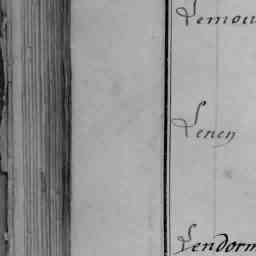 Lemou
Lenen
Lendorm